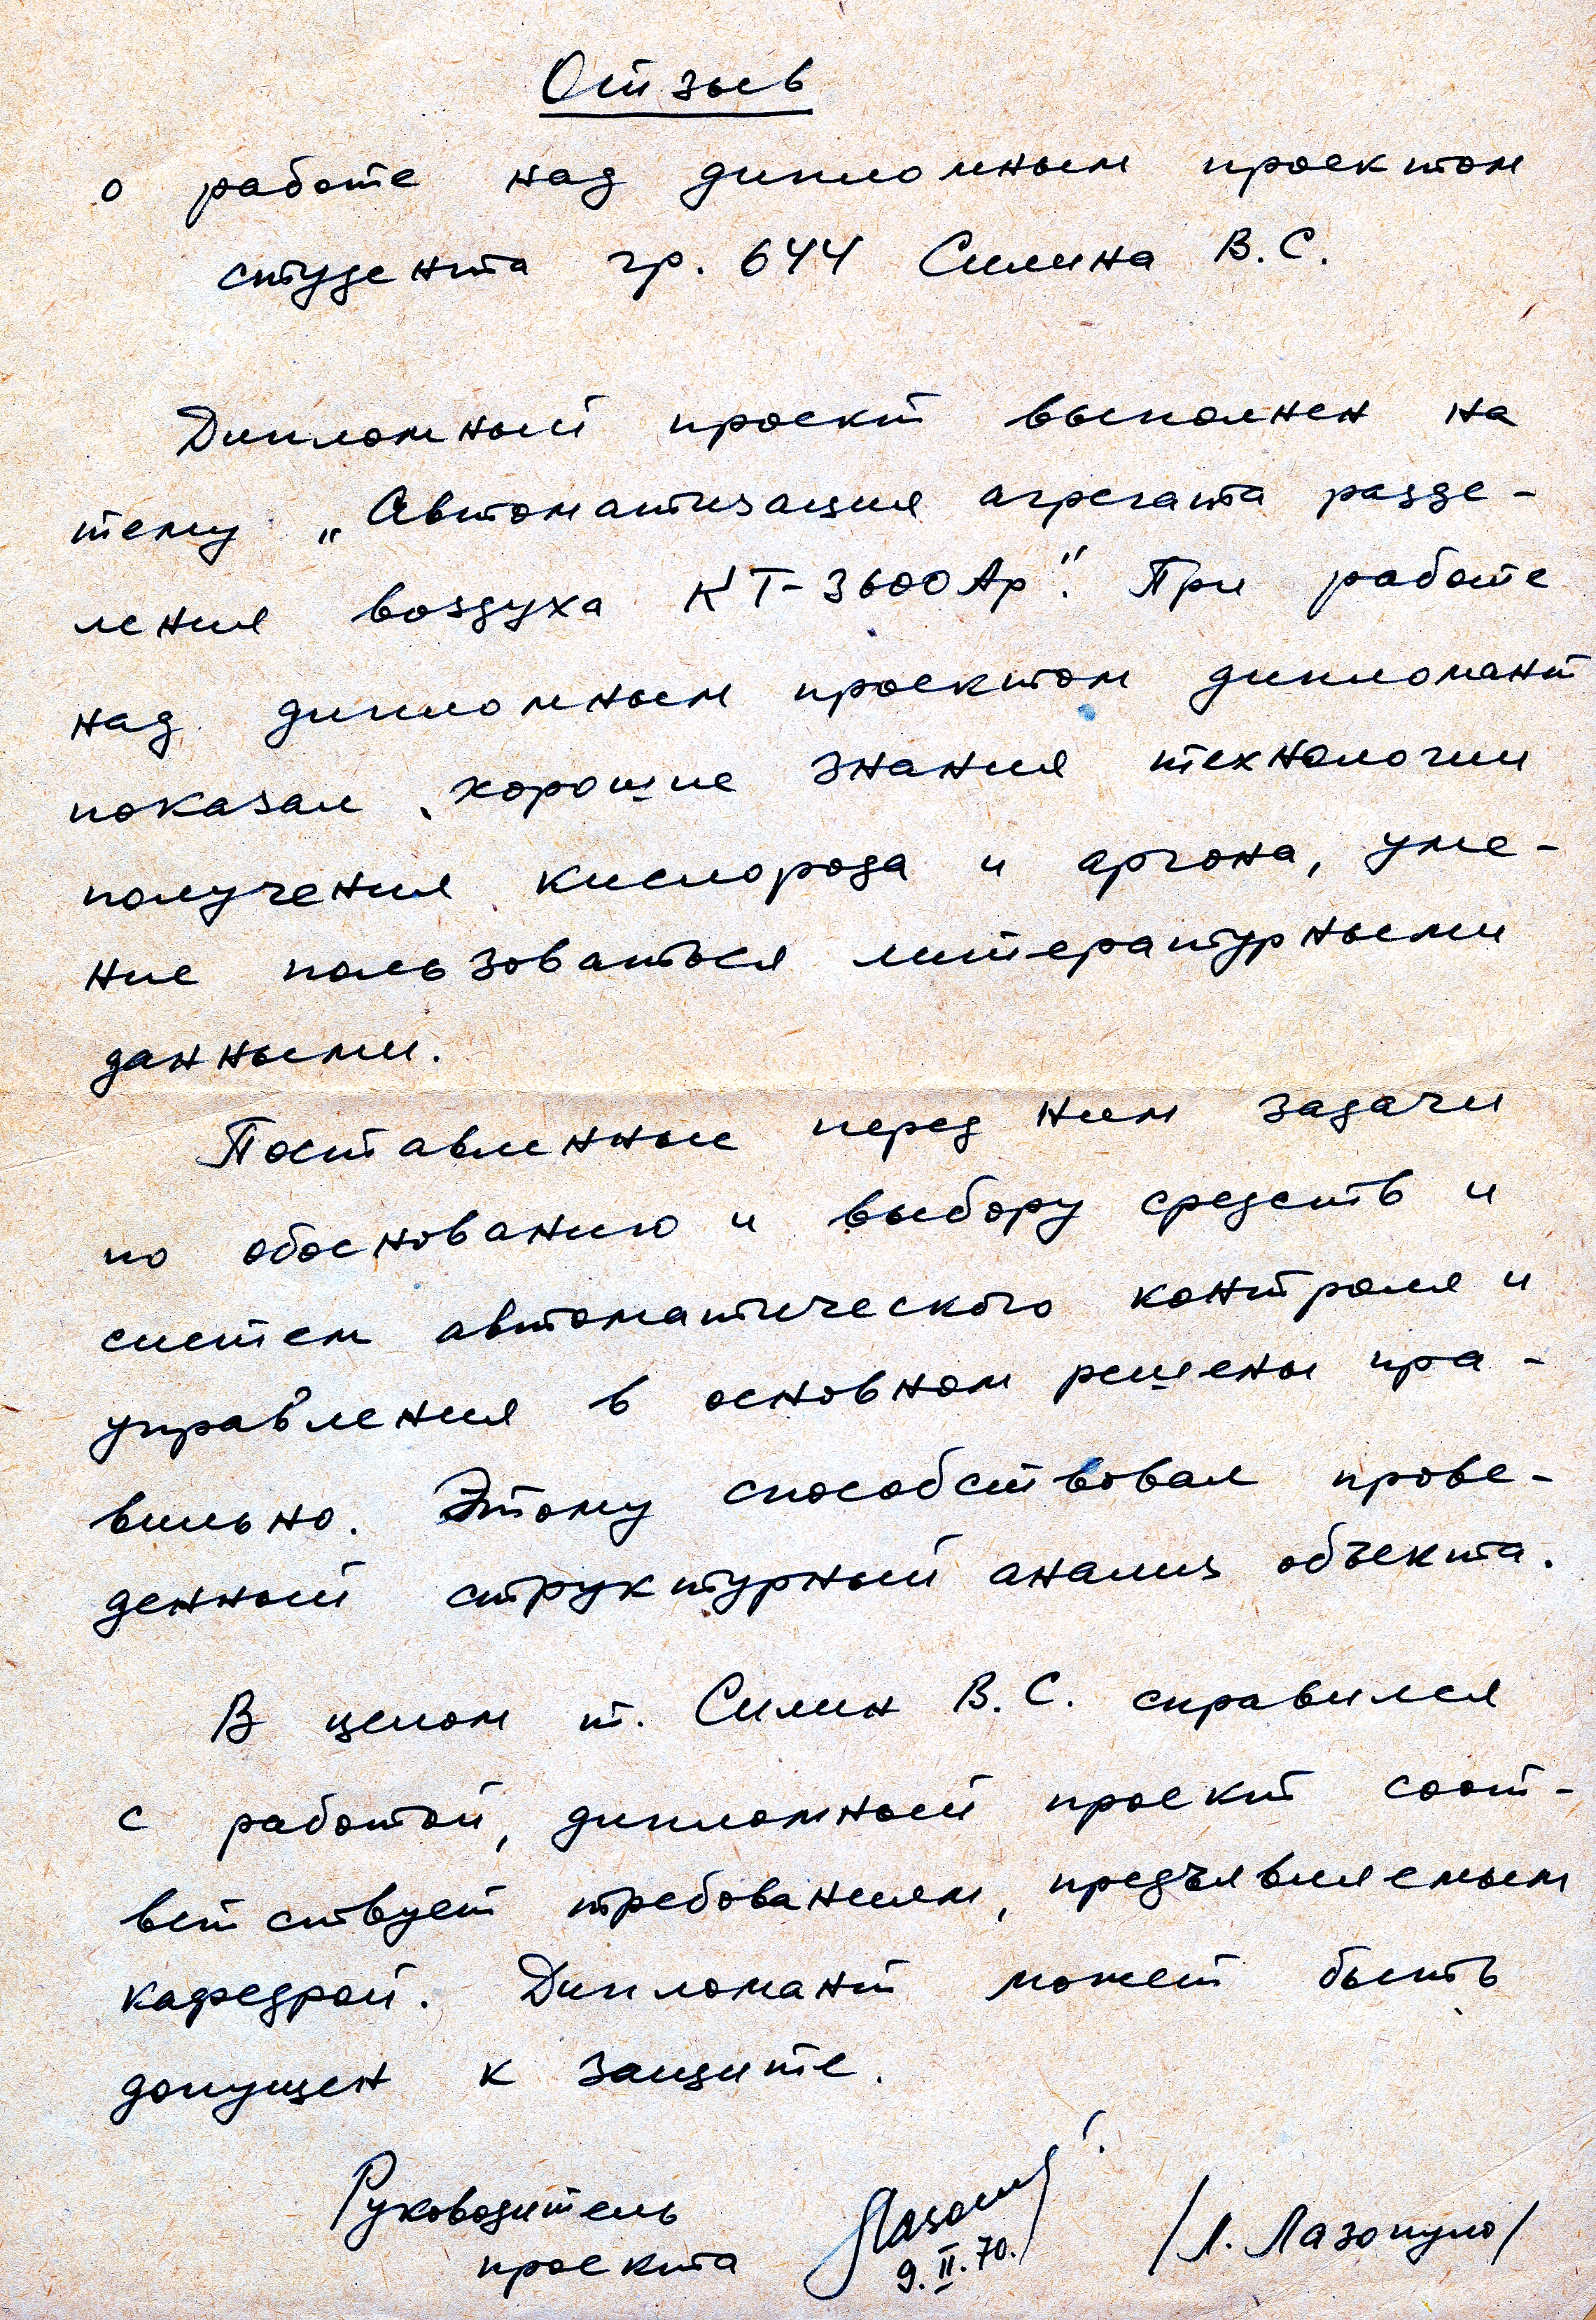 Отзыв
о работе над дипломным проектом
студента гр. 644 Силина В.С.
Дипломный проект выполнен на
тему „Автоматизация агрегата разде-
ления воздуха КТ-3600Ар". При работе
над дипломным проектом дипломант
показал хорошие знания технологии
получения кислорода и аргона, уме-
ние пользоваться литературными
данными.
Поставленные перед ним задачи
по обоснованию и выбору средств и
систем автоматического контроля и
управления в основном решены пра-
вильно. Этому способствовал прове-
денный структурный анализ объекта.
В целом т. Силин В.С. справился
с работой, дипломный проект соот-
ветствует требованиям, предъявляемым
кафедрой. Дипломант может быть
допущен к защите.
Руководитель
проекта
9.II.70.
/Л. Лазопуло/